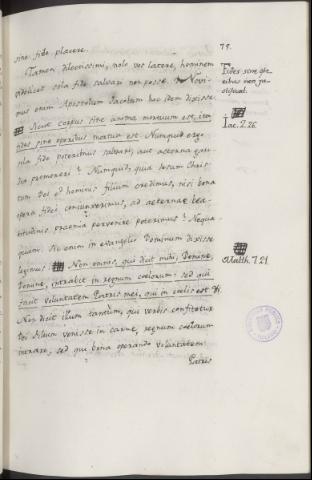 79.
sine fide placere.
Tamen dilectissimi, nolo vos latere, hominem
videlicet sola fide salvari non posse. Novi-
mus enim Apostolum Jacobum hoc idem dixisse.
Sicut corpus sine anima mortuum est, ita
fides sine operibus mortua est. Numquid ergo
sola fide poterimus salvari, aut aeterna gau-
dia promereri? Numquid, quia Jesum Chris-
tum Dei et hominis filium credimus, nisi bona
opera fidei coniunxerimus, ad aeternae bea-
titudinis praemia pervenire poterimus? Nequa-
quam. Sic enim in evangelio Dominum dixisse
legimus. Non omnis, qui dicit mihi, Domine,
Domine, intrabit in regnum coelorum: sed qui
facit voluntatem Patris mei, qui in coelis est
Non dicit illum tantum, qui verbis confitetur
Dei filium venisse in carne, regnum coelorum
intrare, sed qui bona operando voluntatem
Patris
Fides sine ope-
ribus non ju-
stificat.
Jac. 2. 26.
Matth. 7. 21